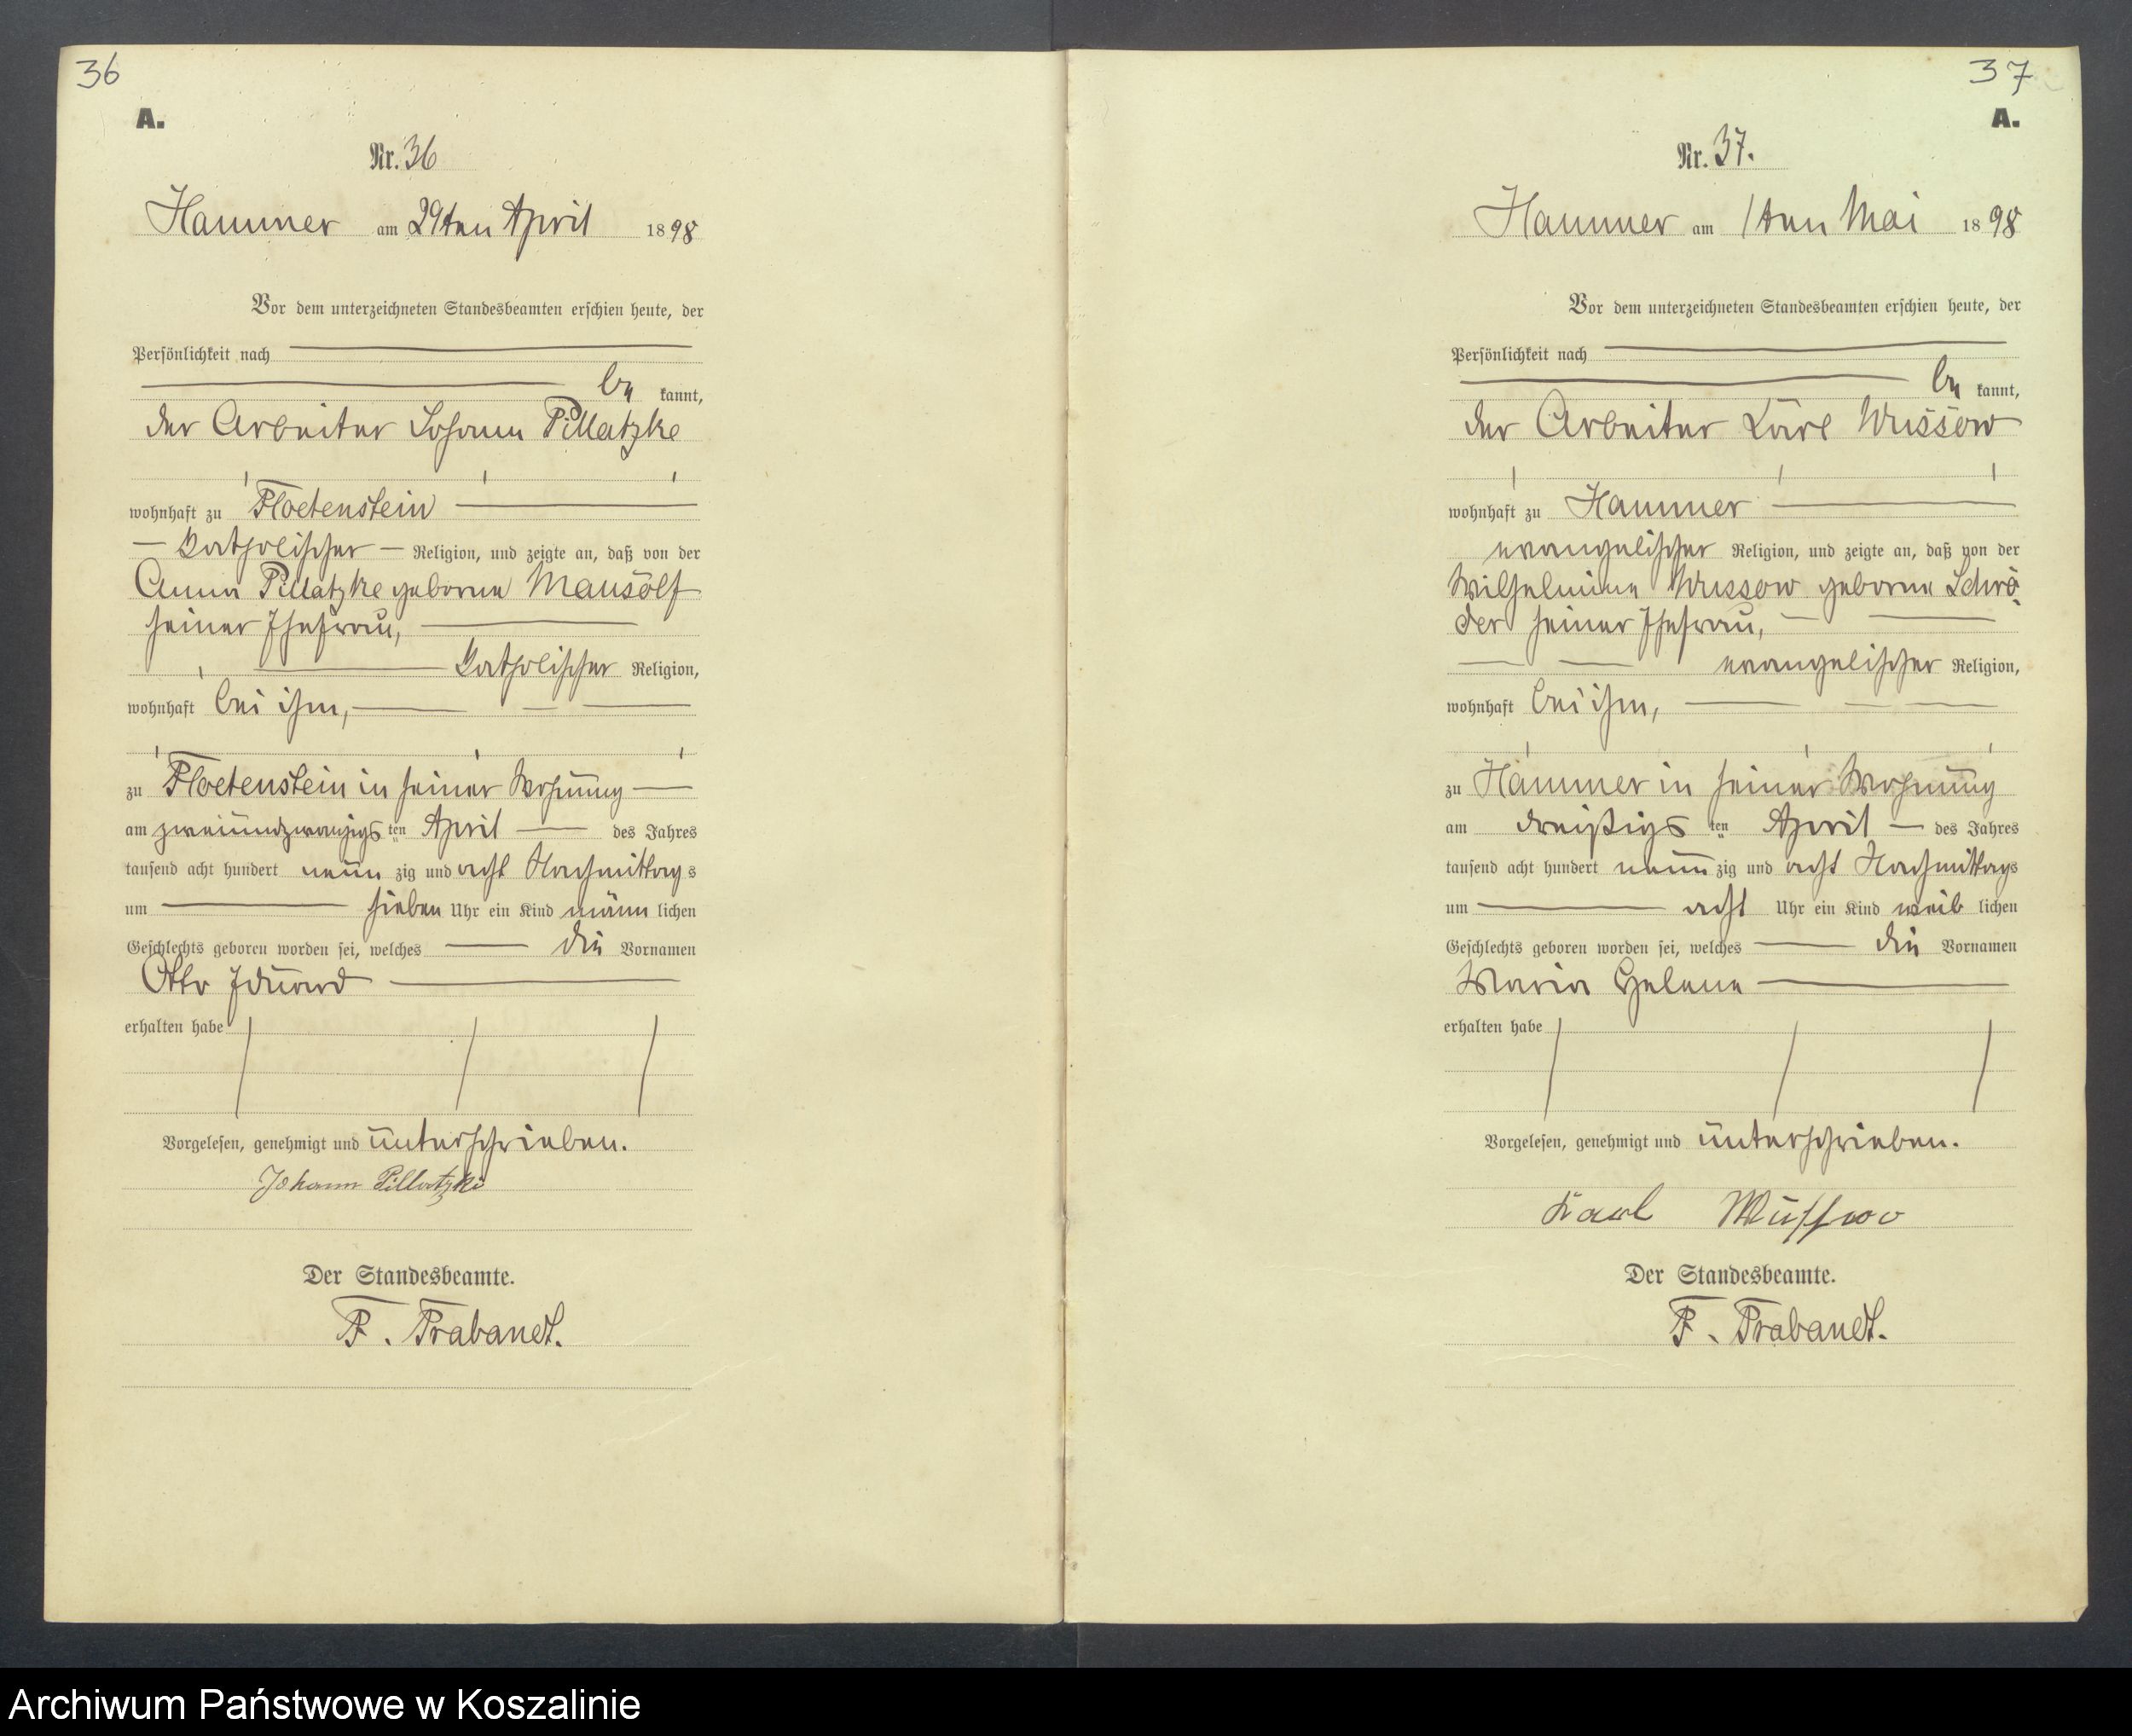 36
A.
Nr. 36
Hammer am 29ten April 1898
Vor dem unterzeichneten Standesbeamten erschien heute, der
Persönlichkeit nach
be kannt,
der Arbeiter Johann Pillatzke
wohnhaft zu Floetenstein
katholischer Religion, und zeigte an, daß von der
Anna Pillatzke geborne Mausolf
seiner Ehefrau,
katholischer Religion,
wohnhaft bei ihm,
zu Floetenstein in seiner Wohnung
am zweiundzwanzigs ten April des Jahres
tausend acht hundert neun zig und acht Nachmittag s
um sieben Uhr ein Kind männ lichen
Geschlechts geboren worden sei, welches die Vornamen
Otto Eduard
erhalten habe
Vorgelesen, genehmigt und unterschrieben.
Johann Pillatzki
Der Standesbeamte.
F. Prabandt.
37
A.
Nr. 37.
Hammer am 1ten Mai 1898
Vor dem unterzeichneten Standesbeamten erschien heute, der
Persönlichkeit nach
be kannt,
der Arbeiter Karl Wussow
wohnhaft zu Hammer
evangelischer Religion, und zeigte an, daß von der
Wilhelmine Wussow geborne Schrö-
der seiner Ehefrau,
evangelischer Religion,
wohnhaft bei ihm,
zu Hammer in seiner Wohnung
am dreißigs ten April des Jahres
tausend acht hundert neun zig und acht Nachmittags
um acht Uhr ein Kind weib lichen
Geschlechts geboren worden sei, welches die Vornamen
Maria Helene
erhalten habe
Vorgelesen, genehmigt und unterschrieben.
Karl Wussow
Der Standesbeamte.
F. Prabandt.
Archiwum Państwowe w Koszalinie